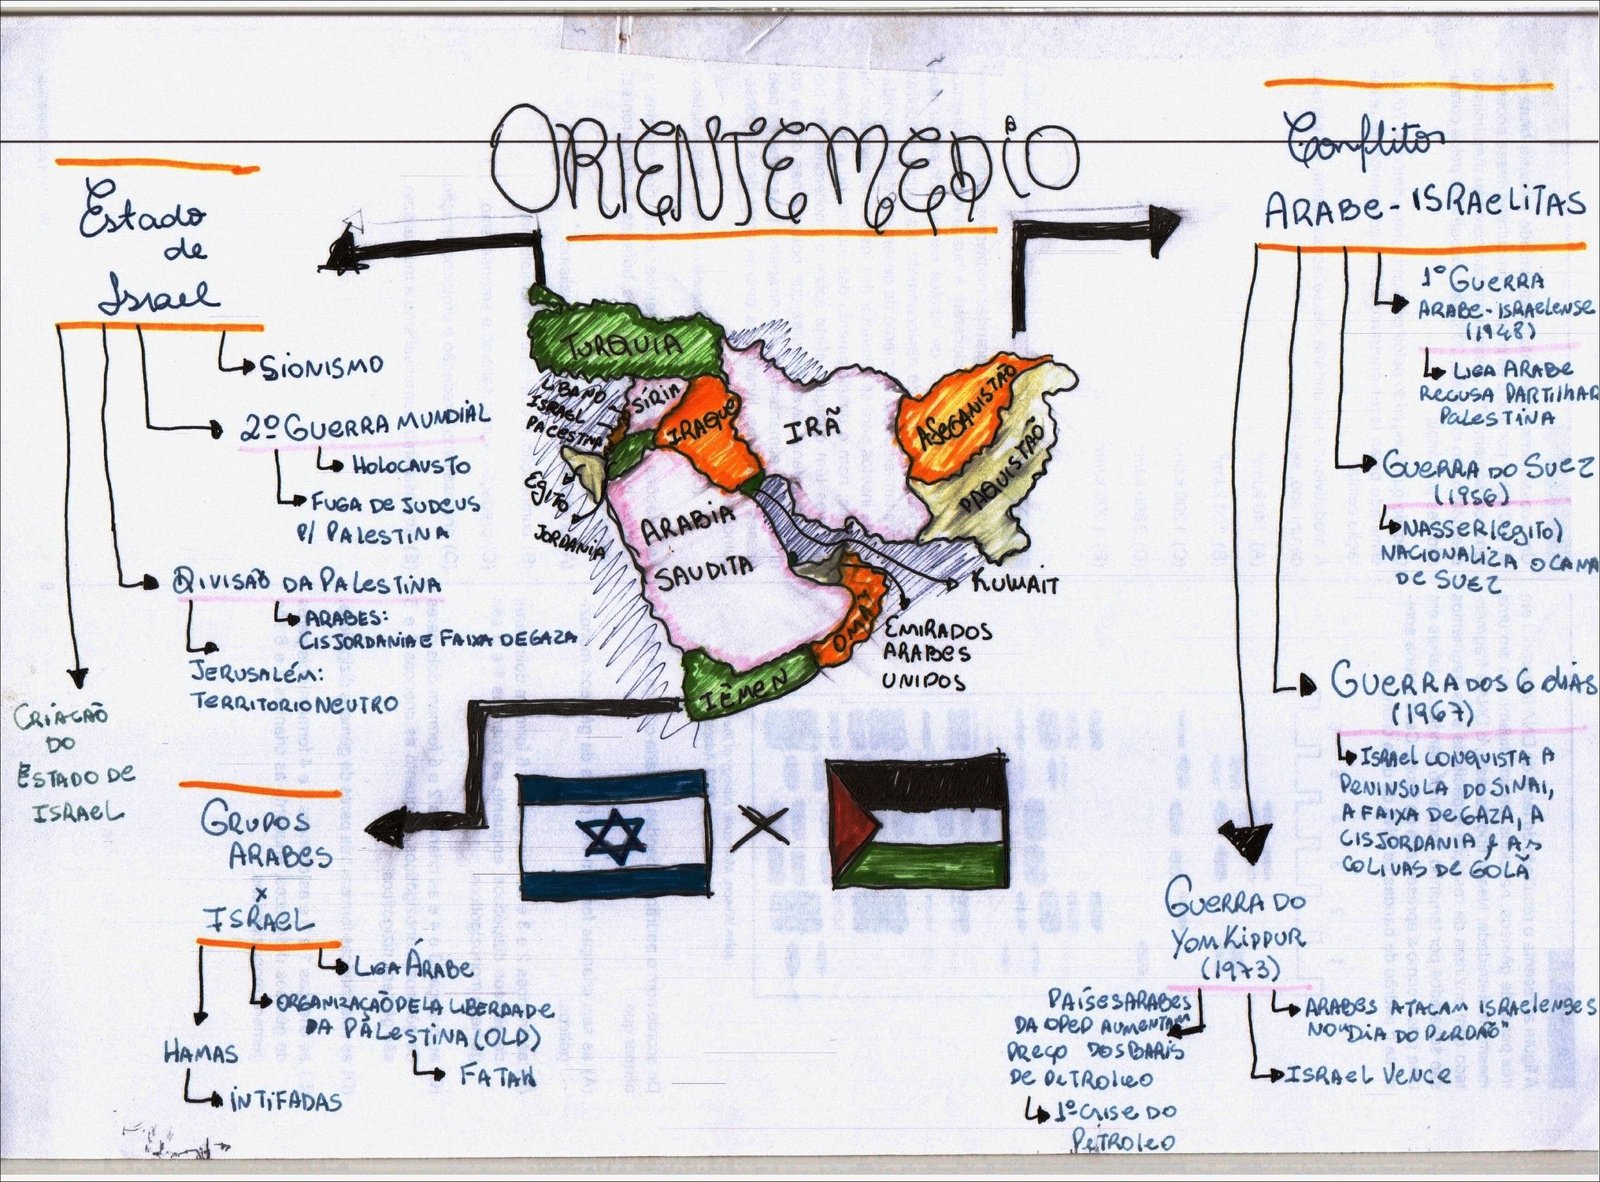 ORIENTE MÉDIO
Estado
de
Israel
SIONISMO
2º GUERRA MUNDIAL
HOLOCAUSTO
FUGA DE JUDEUS
P/ PALESTINA
DIVISÃO DA PALESTINA
ARABES:
CISJORDANIA E FAIXA DE GAZA
JERUSALÉM:
TERRITORIO NEUTRO
CRIAÇÃO
DO
ESTADO DE
ISRAEL
TURQUIA
LIBANO
ISRAEL
PALESTINA
SÍRIA
IRAQUE
IRÃ
AFEGANISTÃO
PAQUISTÃO
EGITO
JORDANIA
ARABIA
SAUDITA
KUWAIT
OMÃ
EMIRADOS
ARABES
UNIDOS
IÊMEN
X
GRUPOS
ARABES
x
ISRAEL
LIGA ÁRABE
ORGANIZAÇÃO PELA LIBERDADE
DA PALESTINA (OLD)
FATAH
HAMAS
INTIFADAS
Conflitos
ARABE-ISRAELITAS
1º GUERRA
ARABE-ISRAELENSE
(1948)
LIGA ARABE
RECUSA PARTILHAR
PALESTINA
GUERRA DO SUEZ
(1956)
NASSER (EGITO)
NACIONALIZA O CANA
DE SUEZ
GUERRA DOS 6 DIAS
(1967)
ISRAEL CONQUISTA A
PENINSULA DO SINAI,
A FAIXA DE GAZA, A
CISJORDANIA & AS
COLIVAS DE GOLÃ
GUERRA DO
YOM KIPPUR
(1973)
ARABES ATACAM ISRAELENSES
NO "DIA DO PERDÃO"
ISRAEL VENCE
PAÍSES ARABES
DA OPEP AUMENTAM
PREÇO DOS BARIS
DE PETROLEO
1º CRISE DO
PETROLEO